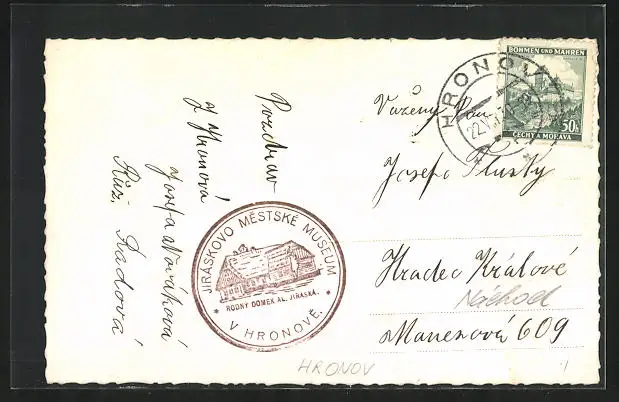 Pozdrav
z Hronova
Josefa Nováková
Růž. Radová
JIRÁSKOVO MĚSTSKÉ MUSEUM
RODNÝ DOMEK AL. JIRÁSKA.
V HRONOVĚ.
HRONOV
BÖHMEN UND MÄHREN
50h
ČECHY A MORAVA
HRONOV
22.
Vážený Pan
Josefa
Hradec Králové
Náchod
Manesova 609